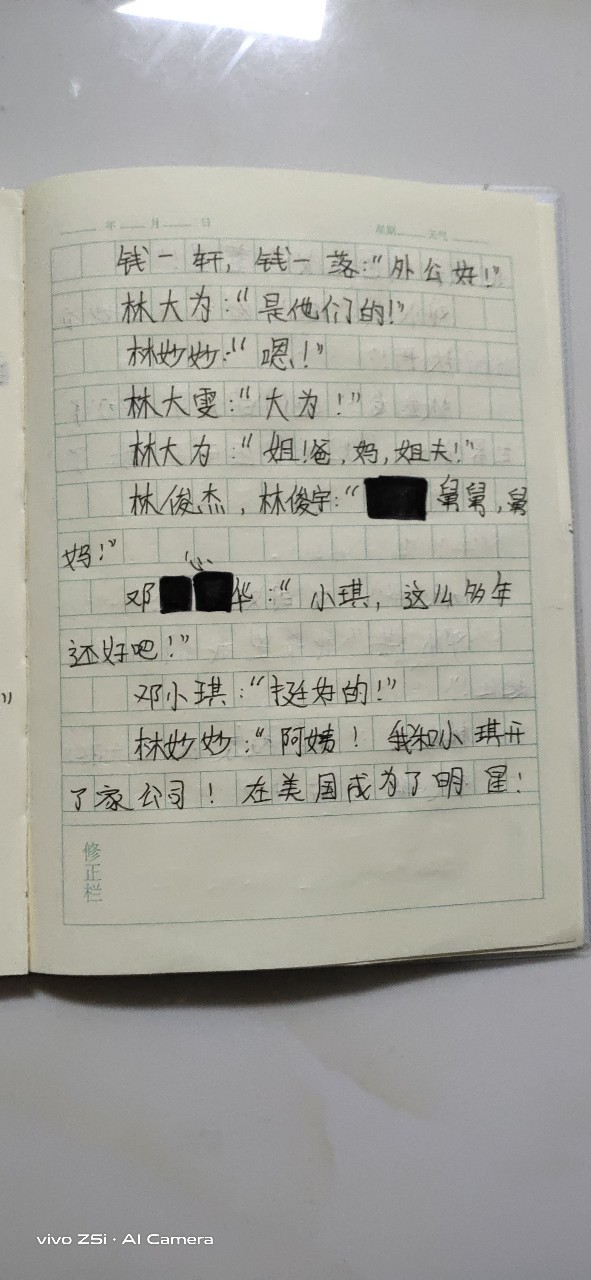 年 月 日 星期 天气
钱一轩，钱一落：“外公好！”
林大为：“是他们的！”
林妙妙：“嗯！”
林大雯：“大为！”
林大为：“姐！爸，妈，姐夫！”
林俊杰，林俊宇：“ 舅舅，舅
妈！”
邓 华：“小琪，这么多年
还好吧！”
邓小琪：“挺好的！”
林妙妙：“阿姨！我和小琪开
了家公司！在美国成为了明星！
修正栏
”
vivo Z5i · AI Camera